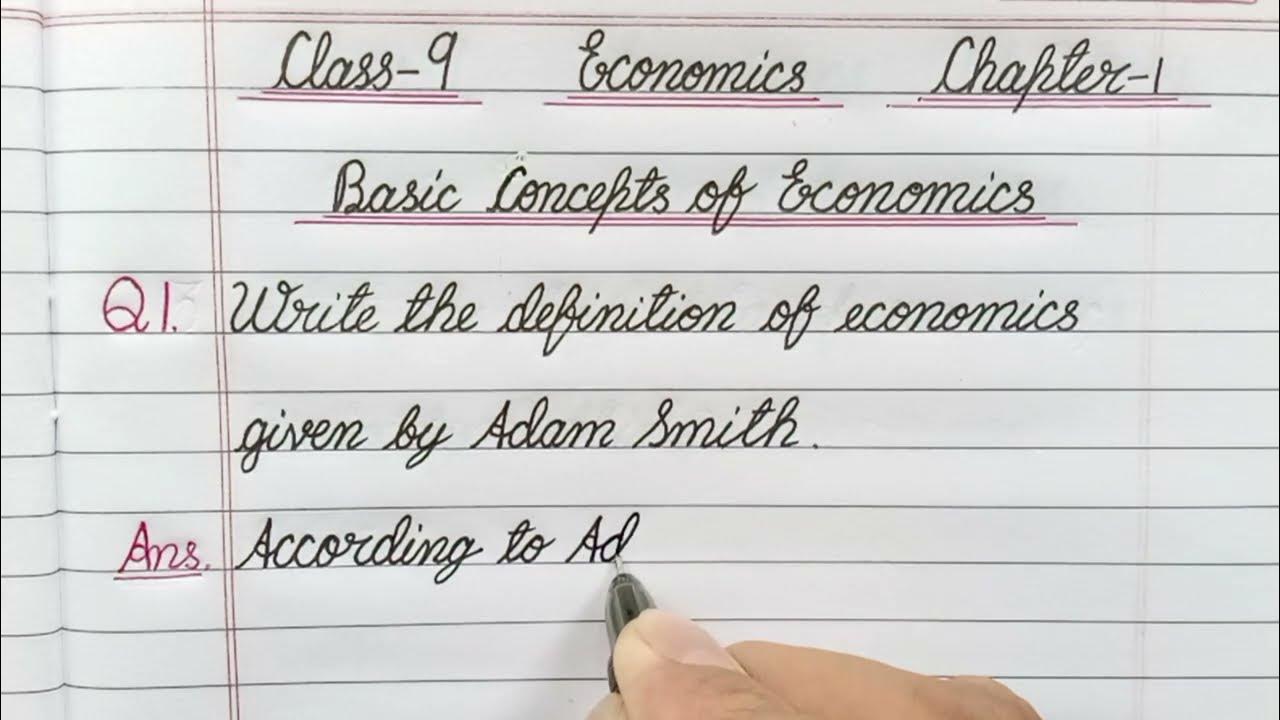 Class-9 Economics Chapter-1
Basic Concepts of Economics
Q1. Write the definition of economics
given by Adam Smith.
Ans. According to Ad